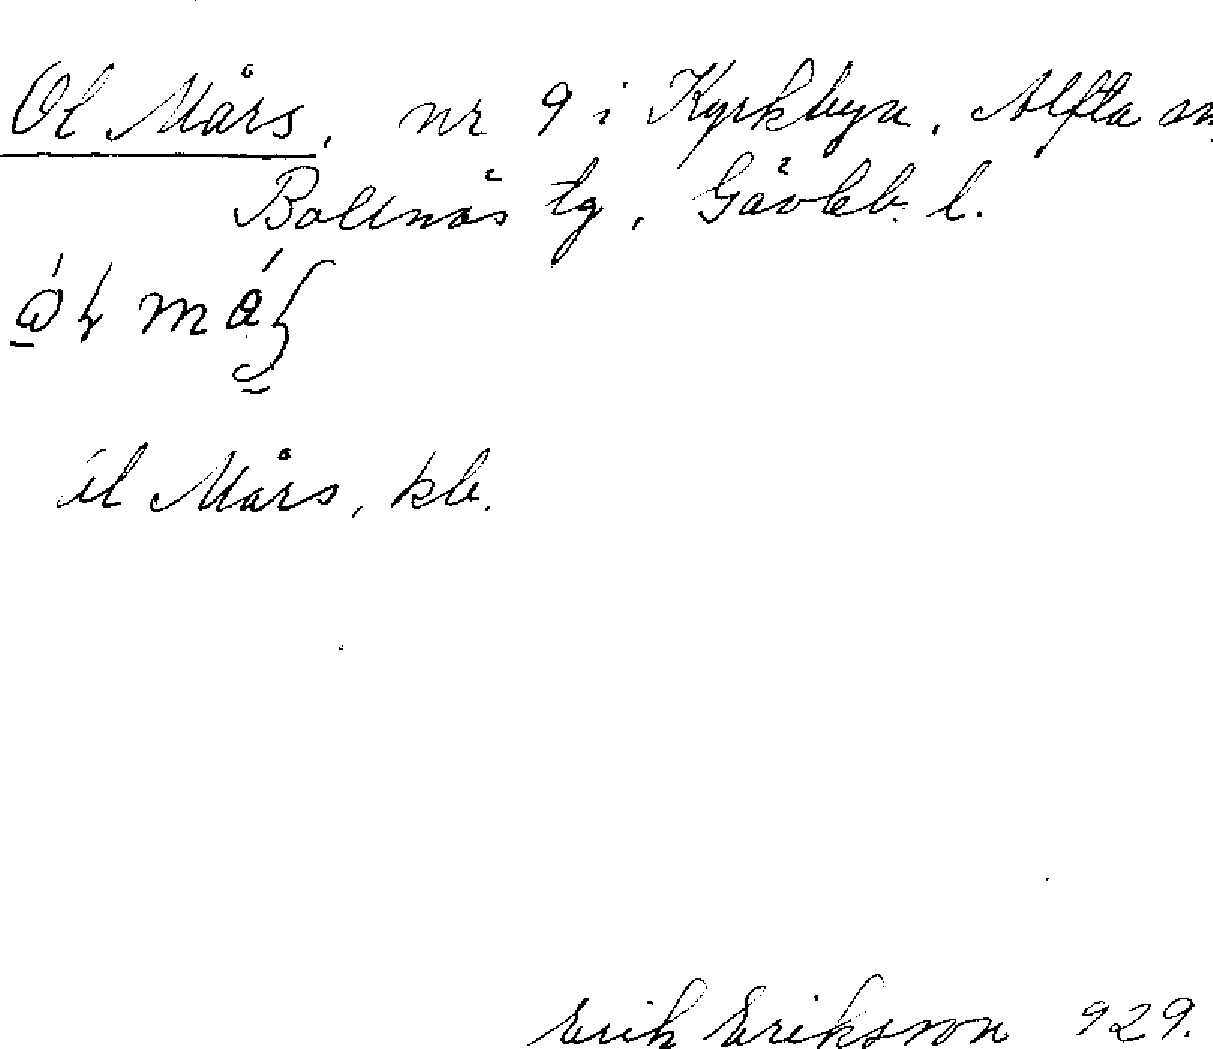 Ol Mårs, nr 9 i Kyrkbyn, Alfta sn
Bollnäs tg, Gävleb. l.
Ol Mårs, kb.
Erik Eriksson 929.